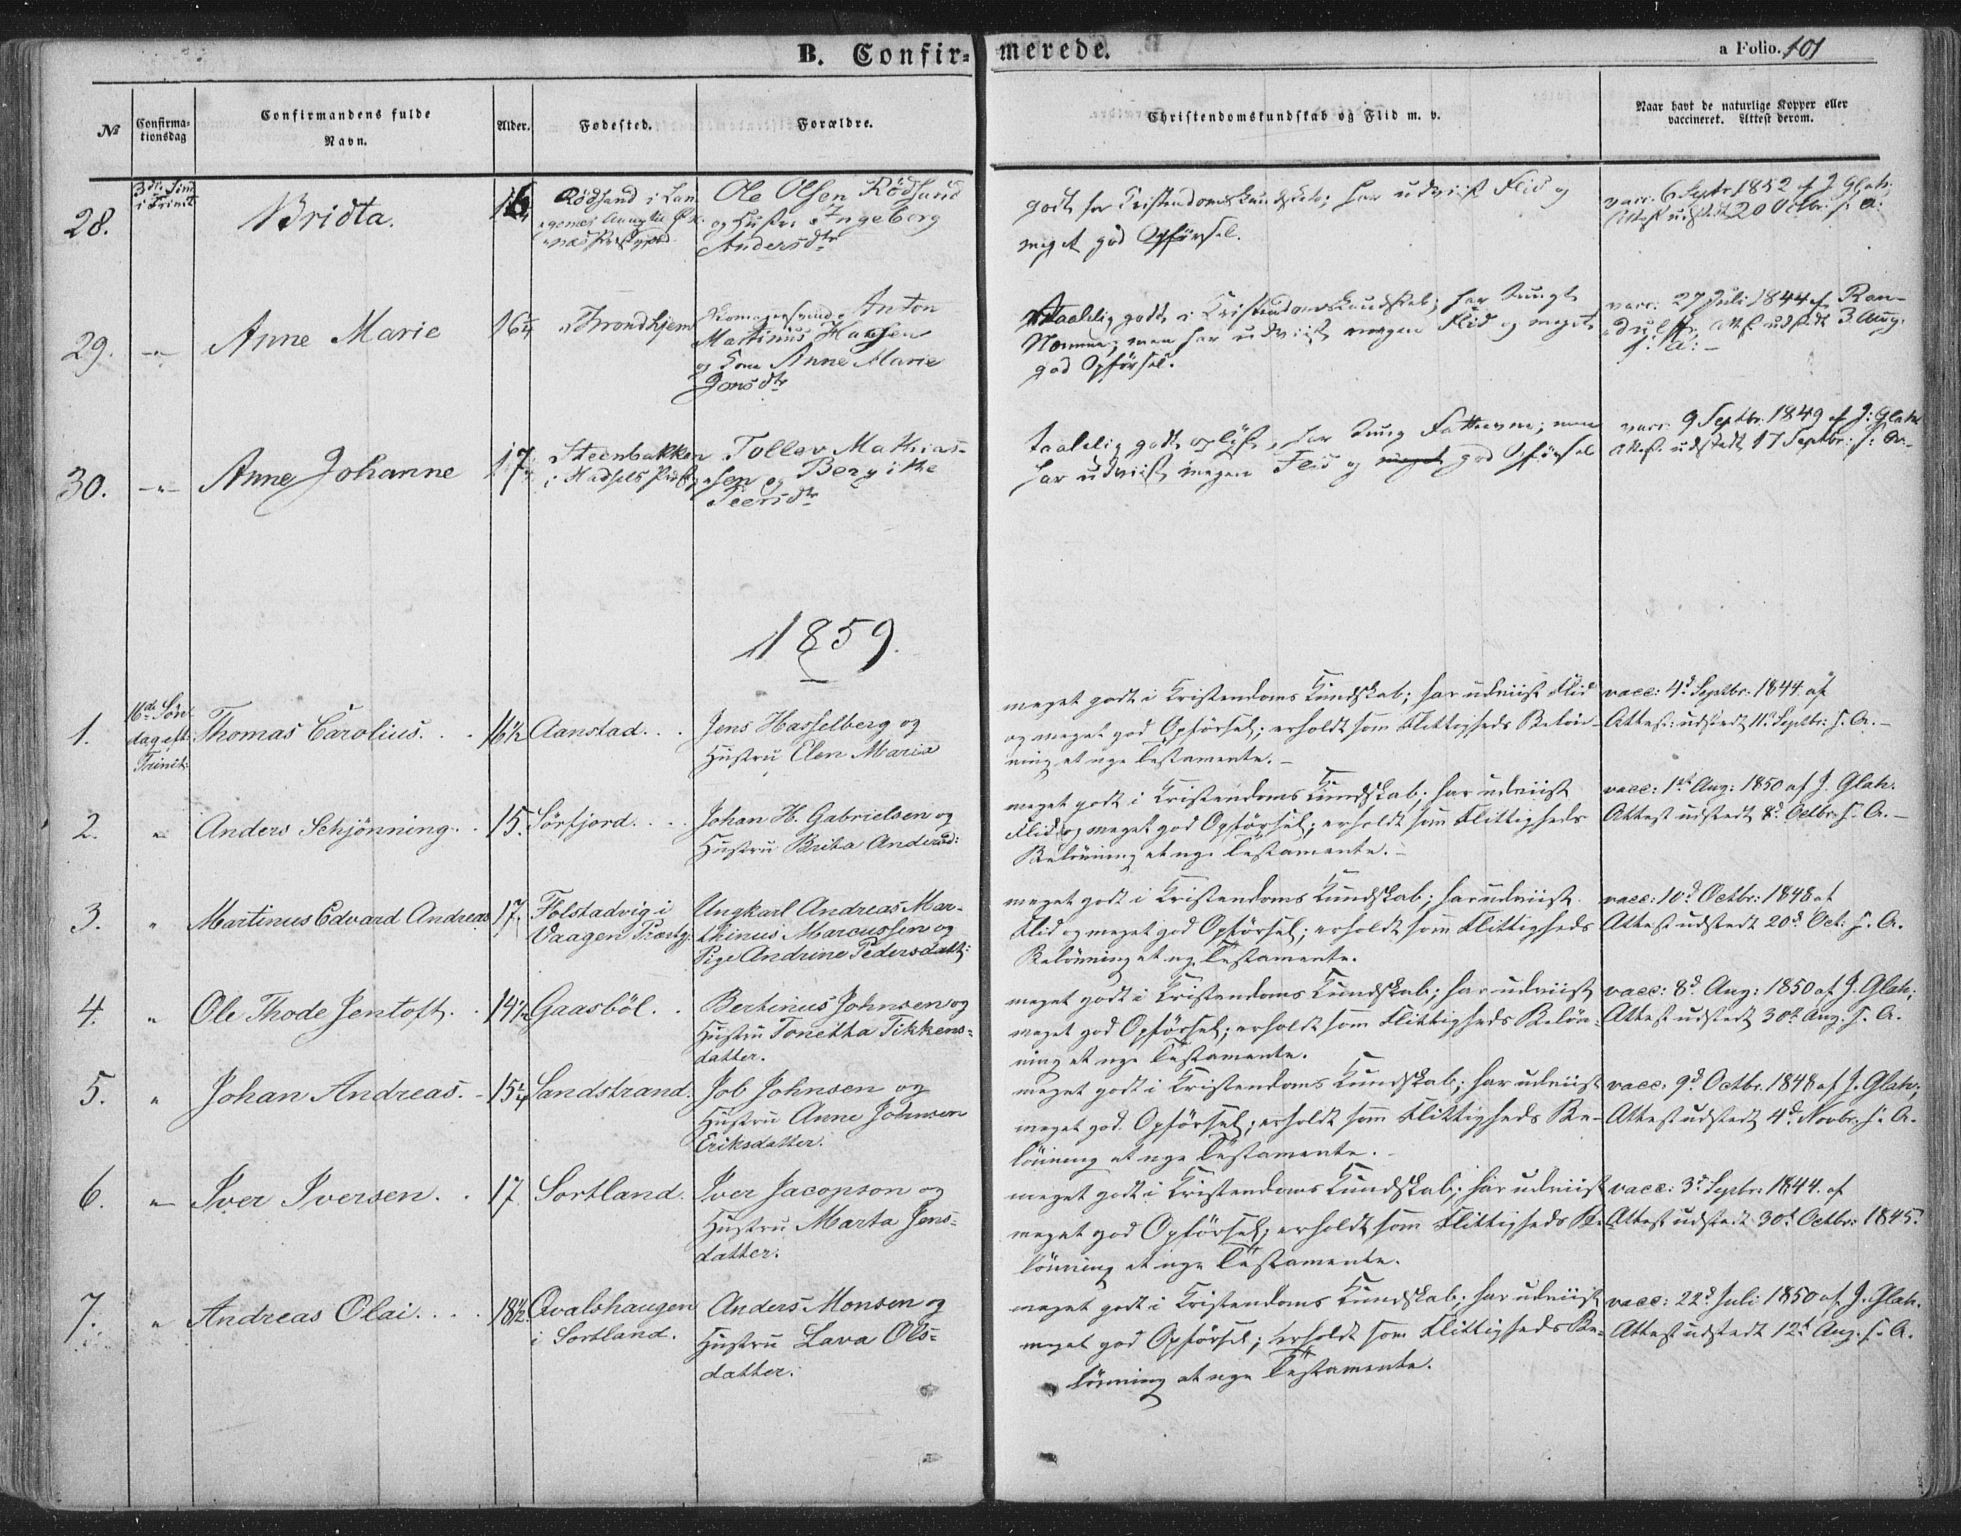 B. Confir-
merede.
a Folio. 101
№
Confirma-
tionsdag
Confirmandens fulde
Navn.
Alder.
Fødested.
Forældre.
Christendomskundskab og Flid m. v.
Naar havt de naturlige Kopper eller
vaccineret. Attest derom.
28.
i Trinit
Bridta.
16
Rödsand i Lan
Ole Olsen Rödsand
og Hustr: Ingeborg
Andersdtr
godt for Kristendomskundskab; har udviist Flid og
meget god Opförsel.
vacc: 6 Septr 1852 af J Glah:
Attest udstedt 20 Octbr: s: a:
29.
-"-
Anne Marie
16
Trondhjem
Anton
Martinus Hansen
og Kone Anne Marie
Jonsdtr
Taalelig godt i Kristendomskundskab; har tungt
Nemme; men har udviist megen Flid og meget
god Opförsel.
vacc: 27 Juli 1844 af Ran-
dulf, Att: udstedt 3 Aug:
s: a: -
30.
-"-
Anne Johanne
17
Steenbakken
i Hadsels
Tollev Mathias-
sen og Bergithe
Peersdtr
taalelig godt oplyst, har tung Fatteevne; men
har udviist megen Flid og meget god Opförsel
vacc: 9 Septbr. 1849 af J: Glah
Attest. udstedt 17 Septbr: s: a.-
1859.
1.
16de Søn
dag eft.
Trinit:
Thomas Carolius.
16½
Aanstad.
Jens Hasselberg og
Hustru Elen Maria
meget godt i Kristendoms Kundskab; har udviist Flid
og meget god Opförsel; erholdt som Flittigheds Belön-
ning et nye Testamente. -
vacc: 4d Septbr: 1844 af
Attest: udstedt 11d Septbr: s. A. -
2.
"
Anders Schjönning.
15.
Sörfjord.
Johan H. Gabrielsen og
Hustru Brita Andersd:
meget godt i Kristendoms Kundskab. har udviist
Flid og meget god Opförsel; erholdt som Flittigheds
Belönning et nye Testamente. -
vacc: 1st Aug: 1850 af J. Glah.
Attest udstedt 8d. Octbr: s. A. -
3.
"
Martinus Edvard Andreas
17.
Folstadvig i
Vaagen Præstg:
Ungkarl Andreas Mar-
thinus Marcussen og
Pige Andrine Pedersdatt:
meget godt i Kristendoms Kundskab; har udviist
Flid og meget god Opförsel; erholdt som Flittigheds
Belönning et nye Testamente.
vacc: 10d Octbr: 1848 af
Attest udstedt 20d Oct: s. A.
4.
"
Ole Thode Jentoft.
14½
Gaasböl.
Bertinus Johnsen og
Hustru Tonetta Tikkens-
datter.
meget godt i Kristendoms Kundskab; har udviist
meget god Opförsel; erholdt som Flittigheds Belön-
ning et nye Testamente.
vacc: 8d. Aug: 1850 af J. Glah;
Attest udstedt 30d. Aug. s. A.
5.
"
Johan Andreas.
15¼
Sandstrand.
Job Johnsen og
Hustru Anne Johnsen
Eriksdatter.
meget godt i Kristendoms Kundskab; har udviist
meget god Opförsel; erholdt som Flittigheds Be-
lönning et nye Testamente.
vacc: 9d Octbr. 1848 af J. Glah;
Attest udstedt 4d. Novbr. s. A.
6.
"
Iver Iversen.
17
Sortland.
Iver Jacopson og
Hustru Marta Jens-
datter.
meget godt i Kristendoms Kundskab; har udviist
meget god Opförsel; erholdt som Flittigheds Be-
lönning et nye Testamente.
vacc: 3d Septbr: 1844. af
Attest udstedt 30d Octbr: 1845.
7.
"
Andreas Olai.
18½
Qvalshaugen
i Sortland.
Anders Monsen og
Hustru Lava Ols-
datter.
meget godt i Kristendoms Kundskab; har udviist
meget god Opförsel; erholdt som Flittigheds Be-
lönning et nye Testamente.
vacc: 22d Juli 1850 af J. Glah.
Attest udstedt 12d. Aug. s. A.